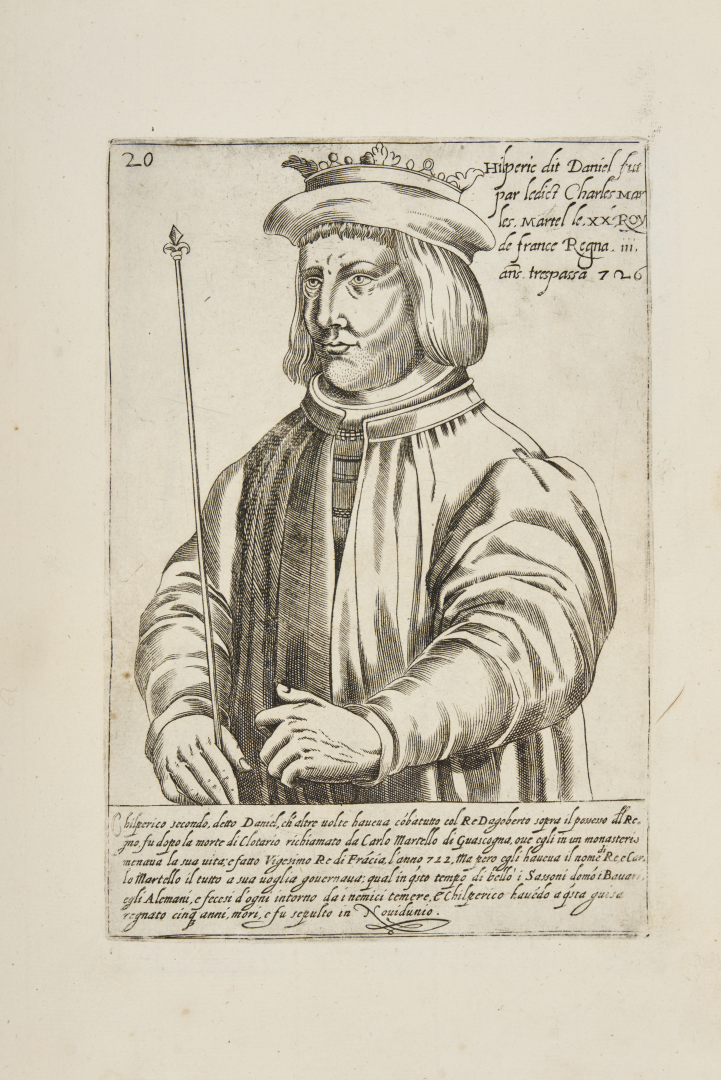 20
Hilperic dit Daniel fut
par ledict Charles Mar
les. Martel le. XX. ROY
de france Regna. iii.
ans. trespassa 726
Chilperico secondo, detto Daniel, ch'altre uolte haueua cõbatuto col Re Dagoberto sopra il possesso dl Re,
gno, fu dopo la morte di Clotario richiamato da Carlo Martello di Guascogna, oue egli in un monasterio
menaua la sua uita; e fatto Vigesimo Re di Frãcia, l'anno 722, Ma pero egli haueua il nome di Re, e Car,
lo Martello il tutto a sua uoglia gouernaua; qual in qsto tempo di bello i Sassoni domò i Bauari,
egli Alemani, e fecesi d'ogni intorno da i nemici temere, E Chilperico hauẽdo a qsta guisa
regnato cinq anni, morì, e fu sepulto in Nouidunio.